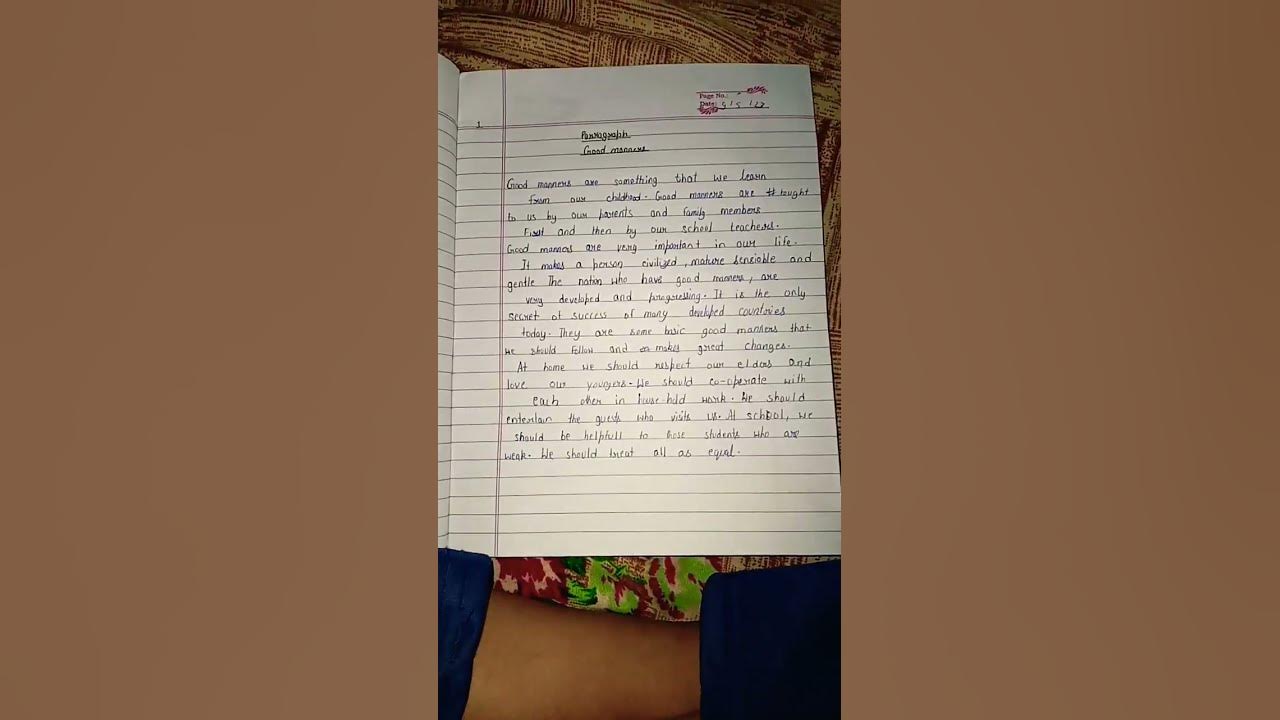 Page No.:
Date: 5/5/22
1
Paragraph
Good manners
Good manners are something that we learn
from our childhood. Good manners are taught
to us by our parents and family members
First and then by our school teachers.
Good manners are very important in our life.
It makes a person civilized, mature sensiable and
gentle The nation who have good manners, are
very developed and progressing. It is the only
secret of success of many developed countries
today. They are some basic good manners that
we should follow and makes great changes.
At home we should respect our elders and
love our youngers. We should co-operate with
each other in house-hold work. We should
entertain the guests who visits us. At school, we
should be helpfull to those students who are
weak. We should treat all as equal.